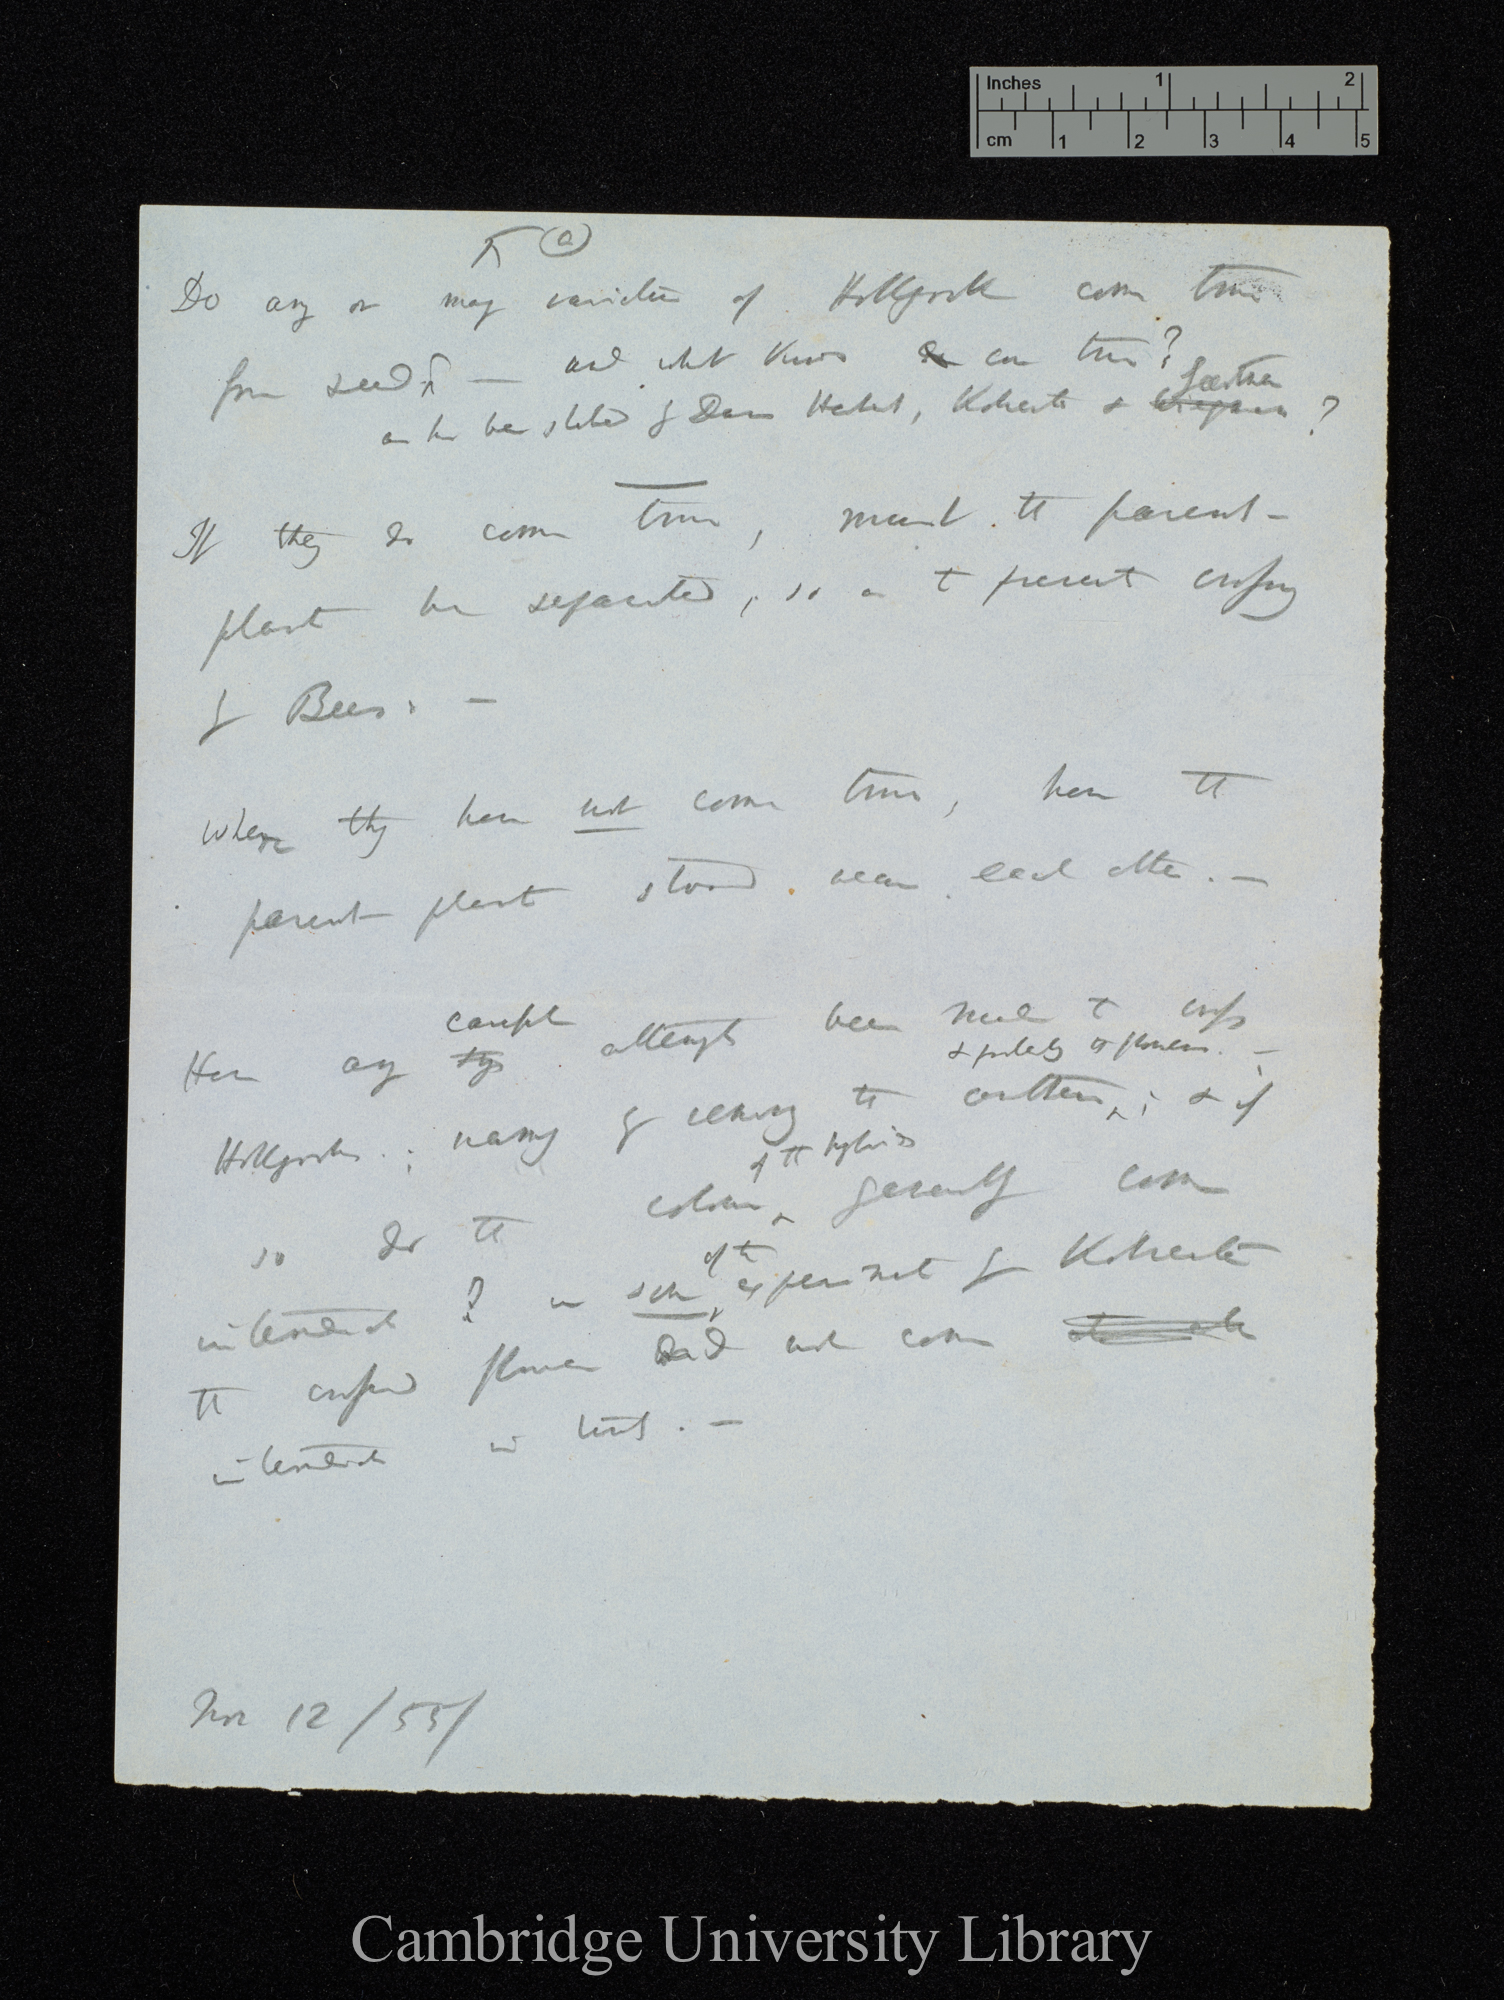 Inches 1 2
cm 1 2 3 4 5
(a)
Do any or many varieties of Hollyock come true
from seed — and what kinds do come true?
as has been stated by Dean Herbert, Kölreuter & Gærtner ?
If they do come true, must the parent-
plant be separated, so as to prevent crossing
by Bees. —
Where they have not come true, have the
parent plants stood near each other. —
careful
Have any attempts been made to cross
& protecting the flowers. —
Hollyocks; namely by removing the anthers; & if
of the hybrids
so do the colours generally come
of the
intermediate? in some experiments by Kölreuter
the crossed flowers did not come
intermediate in tint. —
Nov 12 /55/
Cambridge University Library